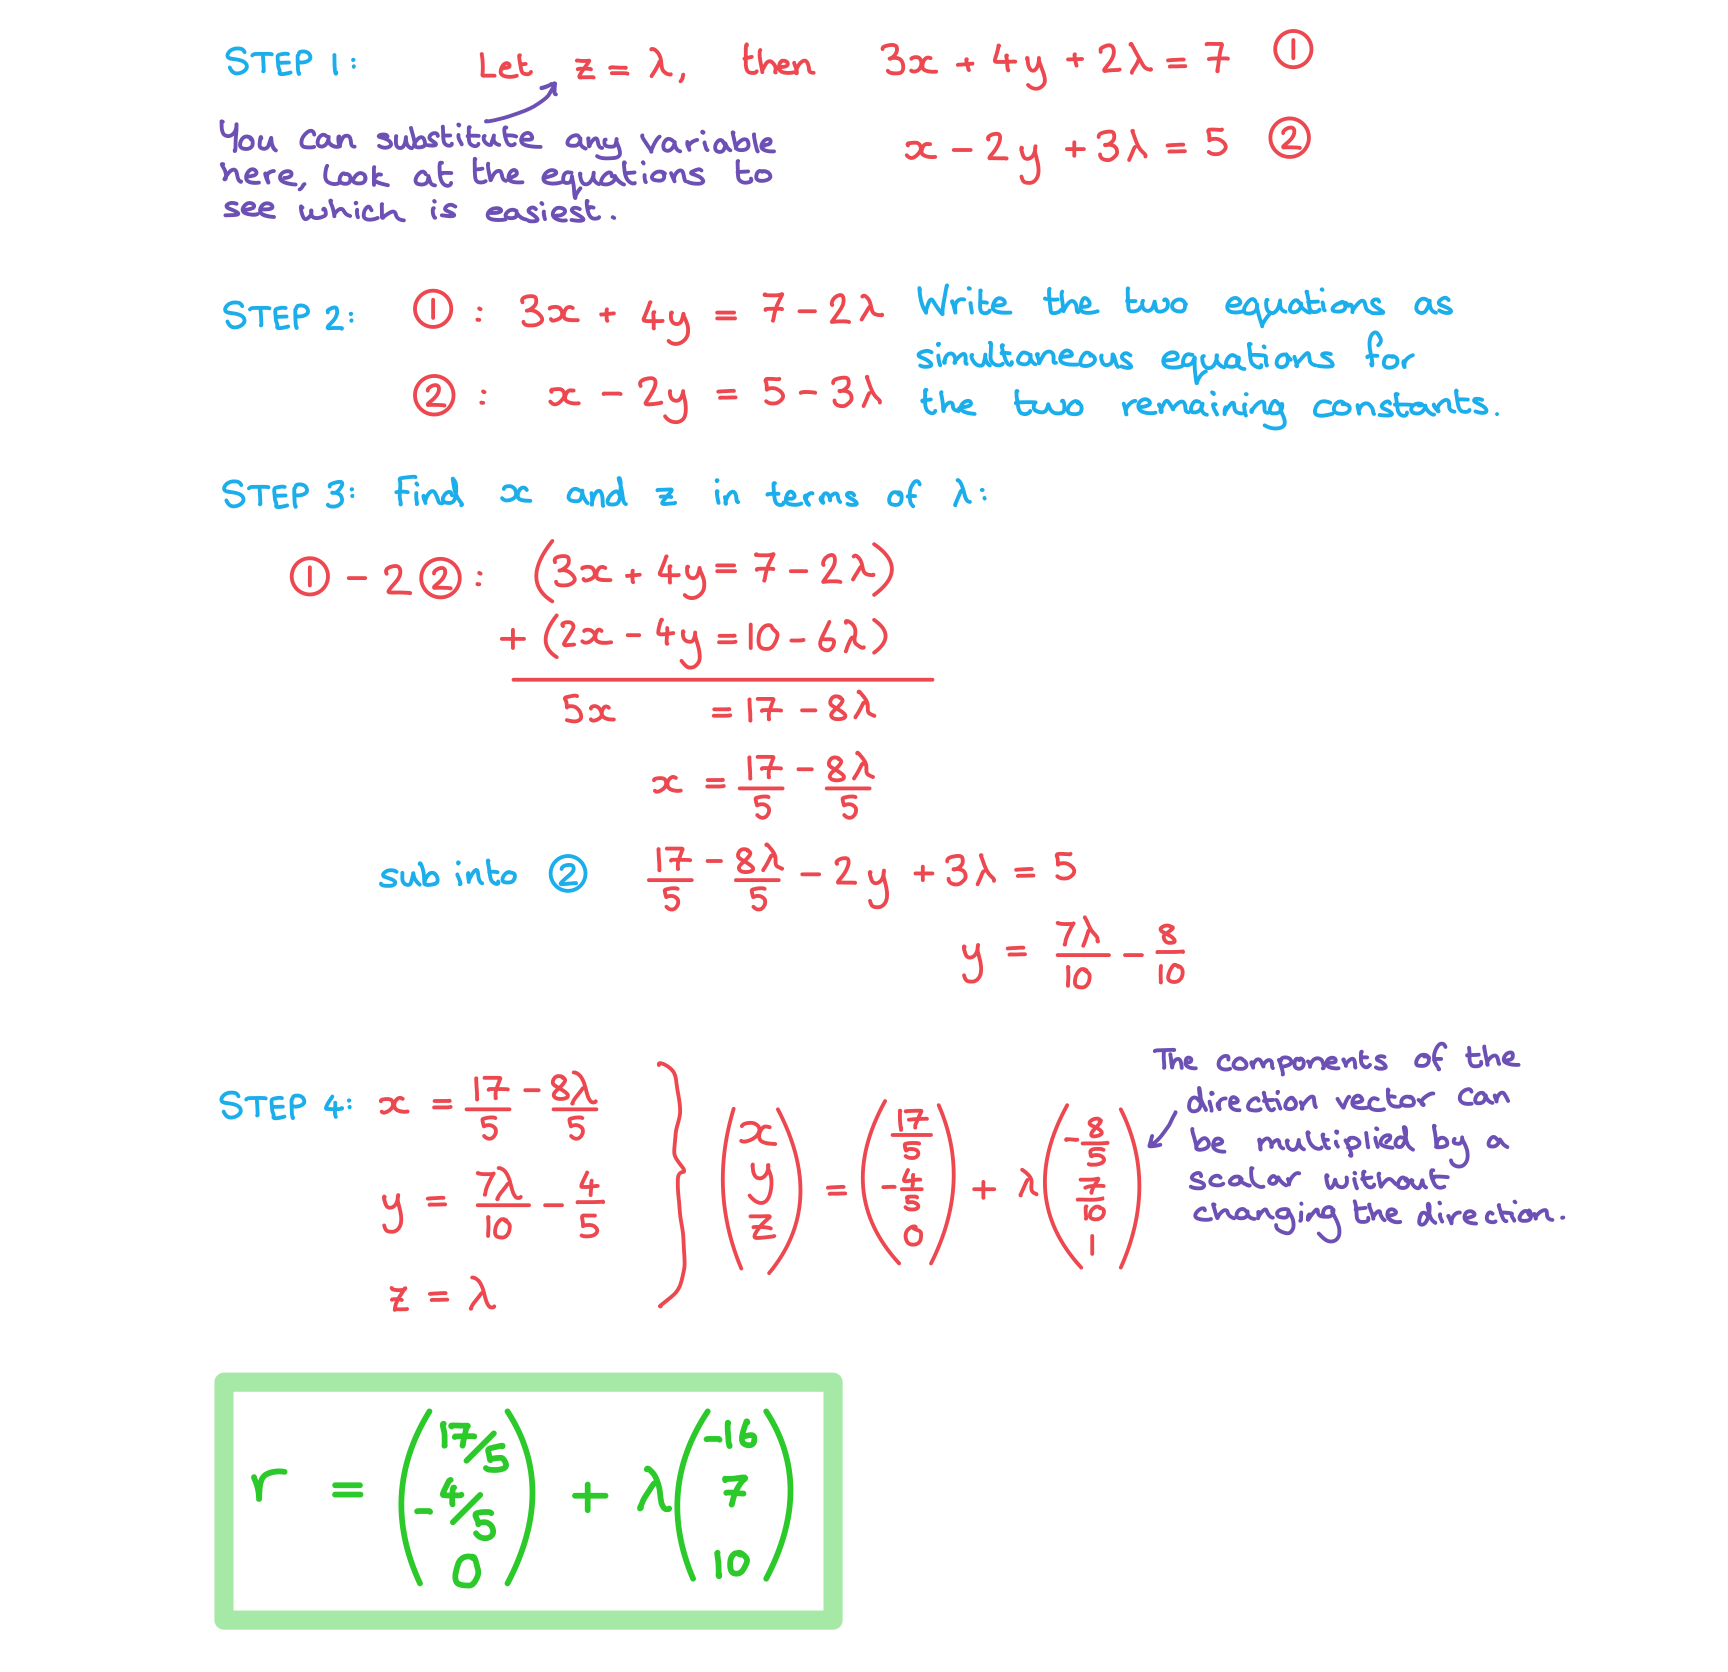 STEP 1: Let z = λ, then 3x + 4y + 2λ = 7 ①
x - 2y + 3λ = 5 ②
You can substitute any variable
here, look at the equations to
see which is easiest.
STEP 2: ① : 3x + 4y = 7 - 2λ Write the two equations as
simultaneous equations for
② : x - 2y = 5 - 3λ the two remaining constants.
STEP 3: Find x and z in terms of λ:
① - 2② : (3x + 4y = 7 - 2λ)
+ (2x - 4y = 10 - 6λ)
5x = 17 - 8λ
x = 17/5 - 8λ/5
sub into ② 17/5 - 8λ/5 - 2y + 3λ = 5
y = 7λ/10 - 8/10
STEP 4: x = 17/5 - 8λ/5
y = 7λ/10 - 4/5
z = λ
(x y z) = (17/5 -4/5 0) + λ(-8/5 7/10 1)
The components of the
direction vector can
be multiplied by a
scalar without
changing the direction.
r = (17/5 -4/5 0) + λ(-16 7 10)